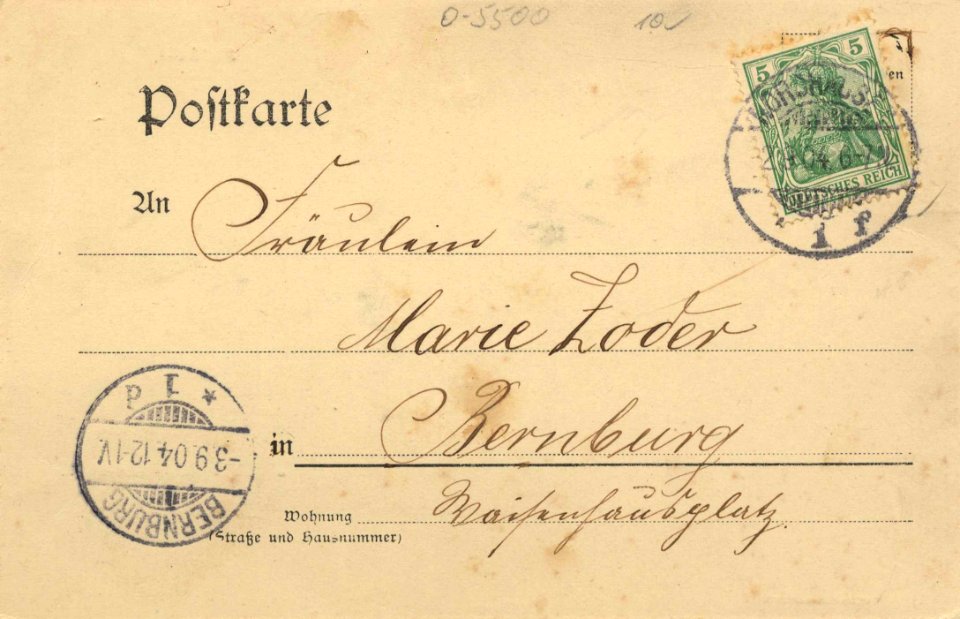 0-5500
10
en
Postkarte
5 5
DEUTSCHES REICH
04 6-7
1 f
An Fräulein
Marie Zoder
in Bernburg
Wohnung Waisenhausplatz.
(Straße und Hausnummer)
BERNBURG
-3.9.04.12-1V.
* 1 d